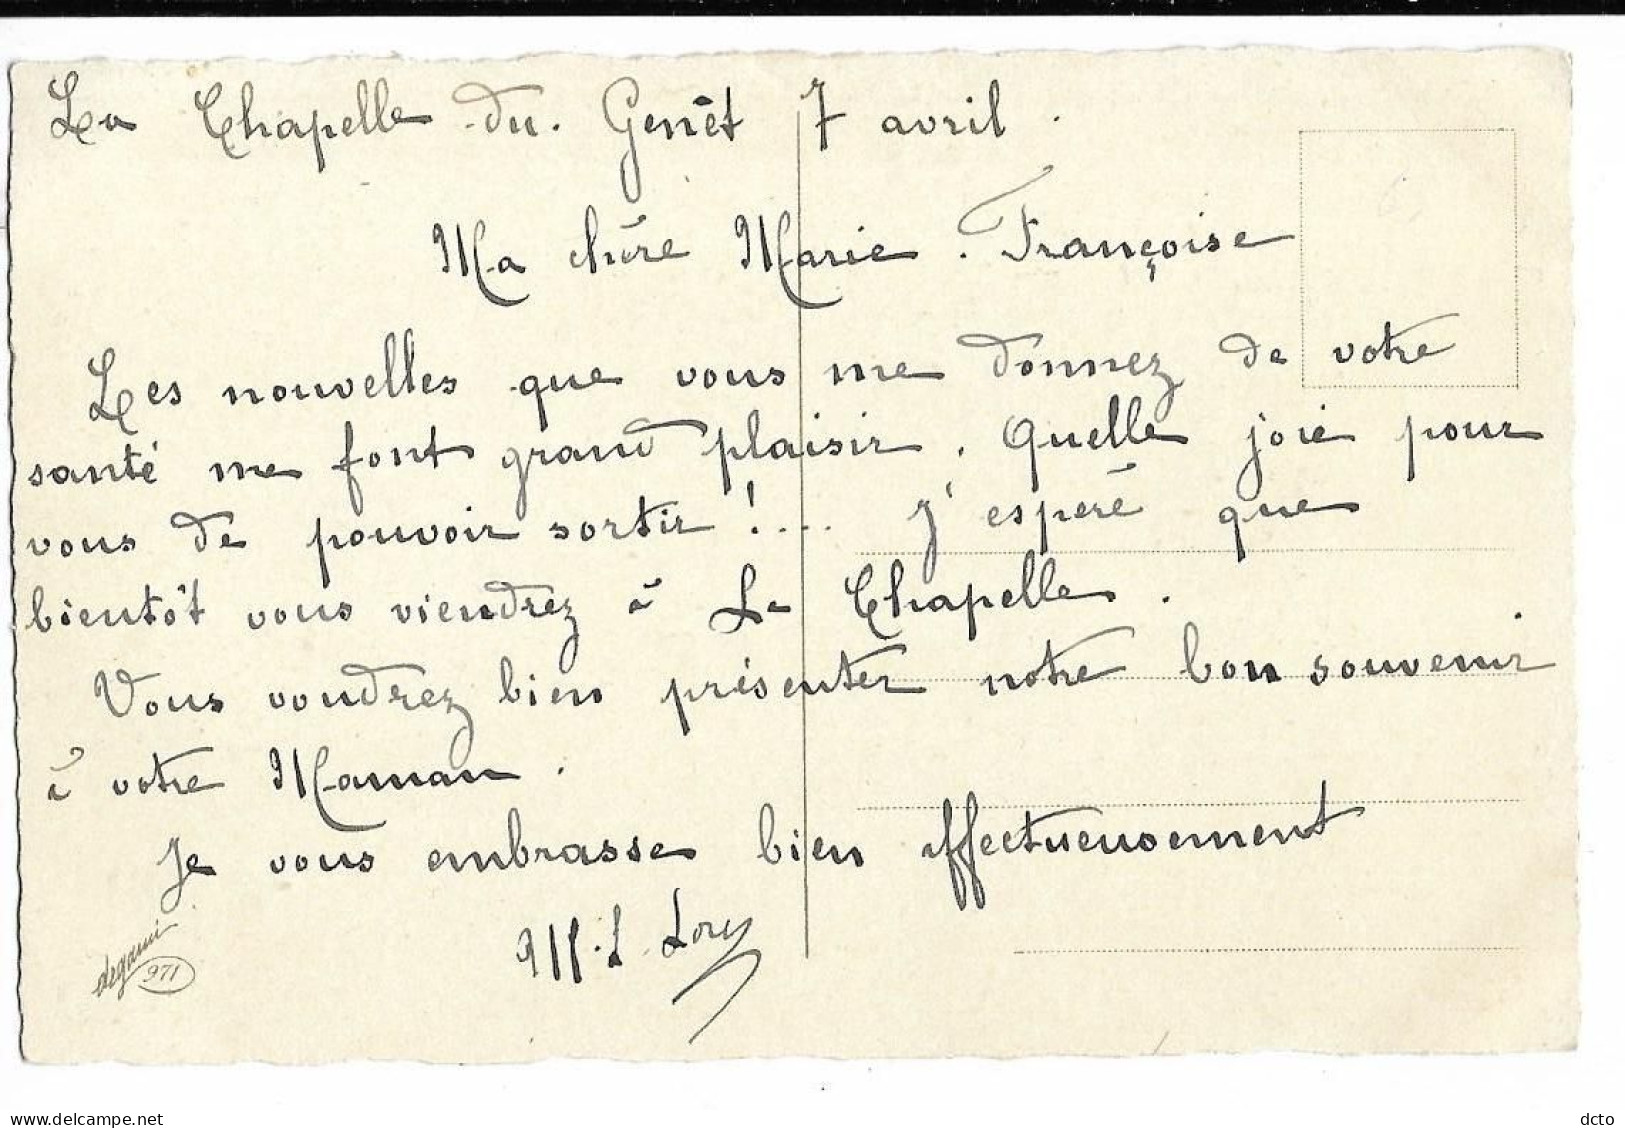 La Chapelle du Genêt 7 avril.
Ma chère Marie-Françoise
Les nouvelles que vous me donnez de votre
santé me font grand plaisir. Quelle joie pour
vous de pouvoir sortir !.... J'esperé que
bientôt vous viendrez à La Chapelle.
Vous voudrez bien présenter notre bon souvenir
à votre Maman.
Je vous embrasse bien affectueusement
M.L. Lory
degami
971
delcampe.net
dcto